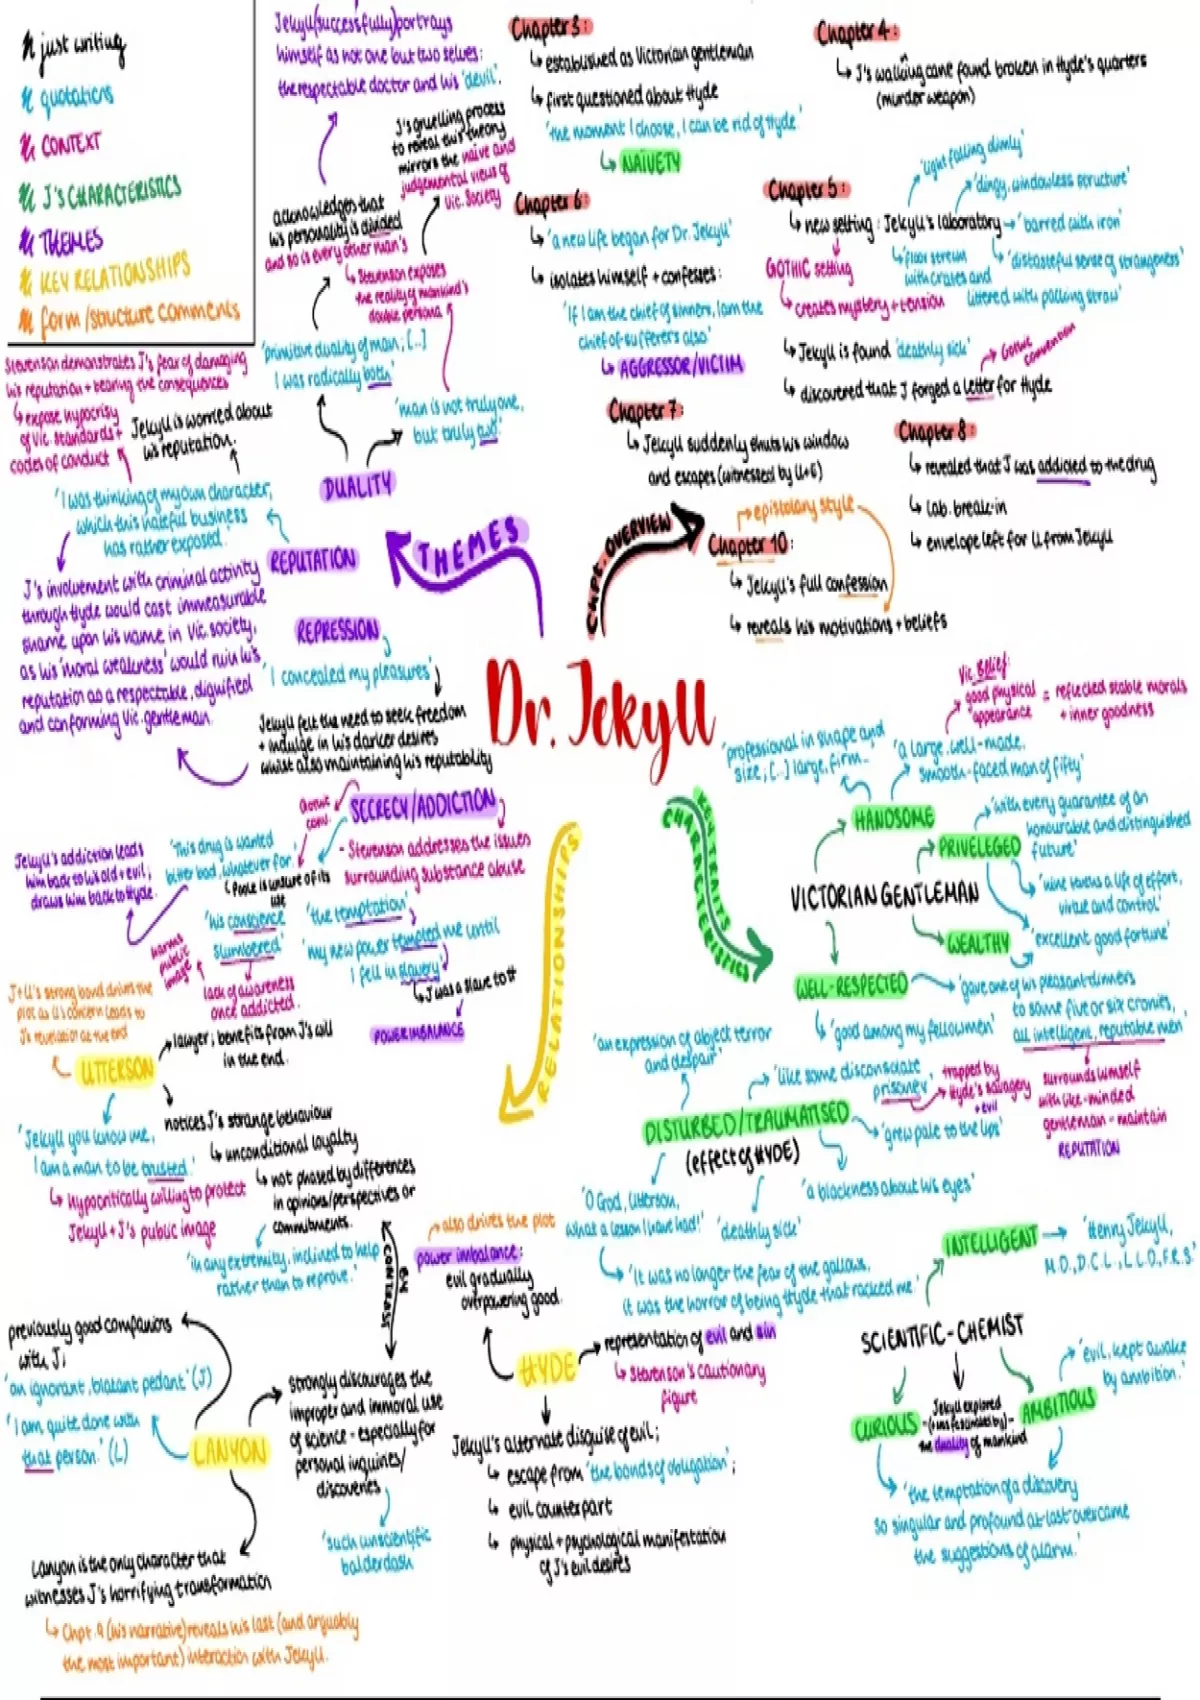 just writing
quotations
CONTEXT
J's CHARACTERISTICS
THEMES
KEY RELATIONSHIPS
form/structure comments
Dr. Jekyll
THEMES
DUALITY
'primitive duality of man; [..]
I was radically both'
acknowledges that
his personality is divided
and so is every other man's
↳ Stevenson exposes
the reality of mankind's
double persona
Jekyll (successfully) portrays
himself as not one but two selves:
the respectable doctor and his 'devil'.
J's gruelling process
to reveal this theory
mirrors the naive and
judgemental views of
Vic. Society
'man is not truly one,
but truly two.'
REPUTATION
'I was thinking of my own character,
which this hateful business
has rather exposed.'
Jekyll is worried about
his reputation.
Stevenson demonstrates J's fear of damaging
his reputation + bearing the consequences
↳ expose hypocrisy
of Vic. standards +
codes of conduct
J's involvement with criminal activity
through Hyde would cast immeasurable
shame upon his name in Vic. society,
as his 'moral weakness' would ruin his
reputation as a respectable, dignified
and conforming Vic. gentleman.
REPRESSION
'I concealed my pleasures'
Jekyll felt the need to seek freedom
+ indulge in his darker desires
whilst also maintaining his reputability
SECRECY/ADDICTION
Gothic
conv.
'This drug is wanted
bitter bad, whatever for.'
↳ Poole is unsure of its
use
Jekyll's addiction leads
him back to his old + evil;
draws him back to Hyde.
- Stevenson addresses the issues
surrounding substance abuse
'his conscience
slumbered'
lack of awareness
once addicted.
harms
public
image
'the temptation'
'my new power tempted me until
I fell in slavery'
↳ J was a slave to H
POWER IMBALANCE
CHPT. OVERVIEW
Chapter 3:
↳ established as Victorian gentleman
↳ first questioned about Hyde
'the moment I choose, I can be rid of Hyde.'
↳ NAÏVETY
Chapter 4:
↳ J's walking cane found broken in Hyde's quarters
(murder weapon)
Chapter 5:
↳ new setting: Jekyll's laboratory → 'barred with iron'
'light falling dimly'
'dingy, windowless structure'
↳ 'floor strewn
with crates and
littered with packing straw'
↳ 'distasteful sense of strangeness'
GOTHIC setting
↳ creates mystery + tension
↳ Jekyll is found 'deathly sick'
→ Gothic
convention
↳ discovered that J forged a letter for Hyde
Chapter 6:
↳ 'a new life began for Dr. Jekyll'
↳ isolates himself + confesses:
'If I am the chief of sinners, I am the
chief of sufferers also'
↳ AGGRESSOR/VICTIM
Chapter 7:
↳ Jekyll suddenly shuts his window
and escapes (witnessed by U+E)
Chapter 8:
↳ revealed that J was addicted to the drug
↳ lab. break-in
↳ envelope left for U from Jekyll
Chapter 10:
→ epistolary style
↳ Jekyll's full confession
↳ reveals his motivations + beliefs
KEY TRAITS
CHARACTERISTICS
VICTORIAN GENTLEMAN
HANDSOME
'professional in shape and
size; [..] large, firm..'
'a large, well-made,
smooth-faced man of fifty'
Vic. Belief:
good physical = reflected stable morals
appearance + inner goodness
PRIVELEGED
'with every guarantee of an
honourable and distinguished
future'
'nine tenths a life of effort,
virtue and control.'
WEALTHY
'excellent good fortune'
WELL-RESPECTED
↳ 'good among my fellowmen'
'gave one of his pleasant dinners
to some five or six cronies,
all intelligent, reputable men'
surrounds himself
with like-minded
gentleman - maintain
REPUTATION
DISTURBED/TRAUMATISED
(effect of HYDE)
'an expression of abject terror
and despair'
'like some disconsolate
prisoner'
trapped by
Hyde's savagery
+ evil
'grew pale to the lips'
'a blackness about his eyes'
'deathly sick'
'O God, Utterson,
what a lesson I have had!'
↳ 'It was no longer the fear of the gallows,
it was the horror of being Hyde that racked me.'
SCIENTIFIC-CHEMIST
INTELLIGENT
'Henry Jekyll,
M.D., D.C.L., L.L.D, F.R.S.'
CURIOUS
Jekyll explored
-(+ was fascinated by)-
the duality of mankind
AMBITIOUS
'evil, kept awake
by ambition.'
'the temptation of a discovery
so singular and profound at last overcame
the suggestions of alarm.'
RELATIONSHIPS
UTTERSON
J+U's strong bond drives the
plot as U's concern leads to
J's revelation at the end
lawyer; benefits from J's will
in the end.
'Jekyll you know me,
I am a man to be trusted.'
↳ Hypocritically willing to protect
Jekyll + J's public image
notices J's strange behaviour
↳ unconditional loyalty
↳ not phased by differences
in opinions/perspectives or
commitments.
'in any extremity, inclined to help
rather than to reprove.'
BY
CONTRAST
LANYON
previously good companions
with J;
'an ignorant, blatant pedant' (J)
'I am quite done with
that person.' (L)
strongly discourages the
improper and immoral use
of science - especially for
personal inquiries/
discoveries
'such unscientific
balderdash
Lanyon is the only character that
witnesses J's horrifying transformation
↳ Chpt. 9 (his narrative) reveals his last (and arguably
the most important) interaction with Jekyll.
HYDE
→ also drives the plot
power imbalance:
evil gradually
overpowering good.
representation of evil and sin
↳ Stevenson's cautionary
figure
Jekyll's alternate disguise of evil;
↳ escape from 'the bonds of obligation';
↳ evil counterpart
↳ physical + psychological manifestation
of J's evil desires